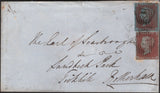 The Earl of Scarborough
Sandbeck Park
Tickhill Rotherham